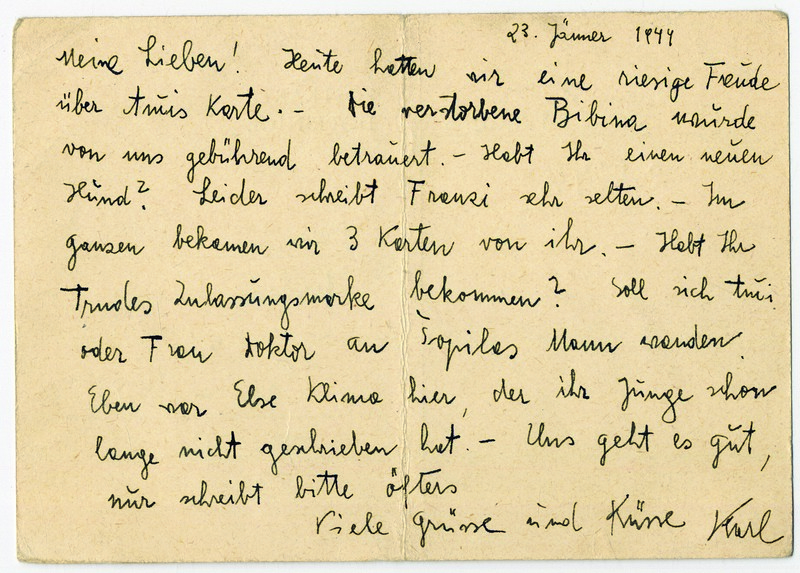 23. Jänner 1944
Meine Lieben! Heute hatten wir eine riesige Freude
über Tuis Karte. – Die verstorbene Bibina wurde
von uns gebührend betrauert. – Habt Ihr einen neuen
Hund? Leider schreibt Franzi sehr selten. – Im
ganzen bekamen wir 3 Karten von ihr. – Habt Ihr
Trudes Zulassungsmarke bekommen? Soll sich Tui
oder Frau Doktor an Mann wenden
Eben war Else Klima hier, der ihr Junge schon
lange nicht geschrieben hat. – Uns geht es gut,
nur schreibt bitte öfters
Viele Grüsse und Küsse Karl